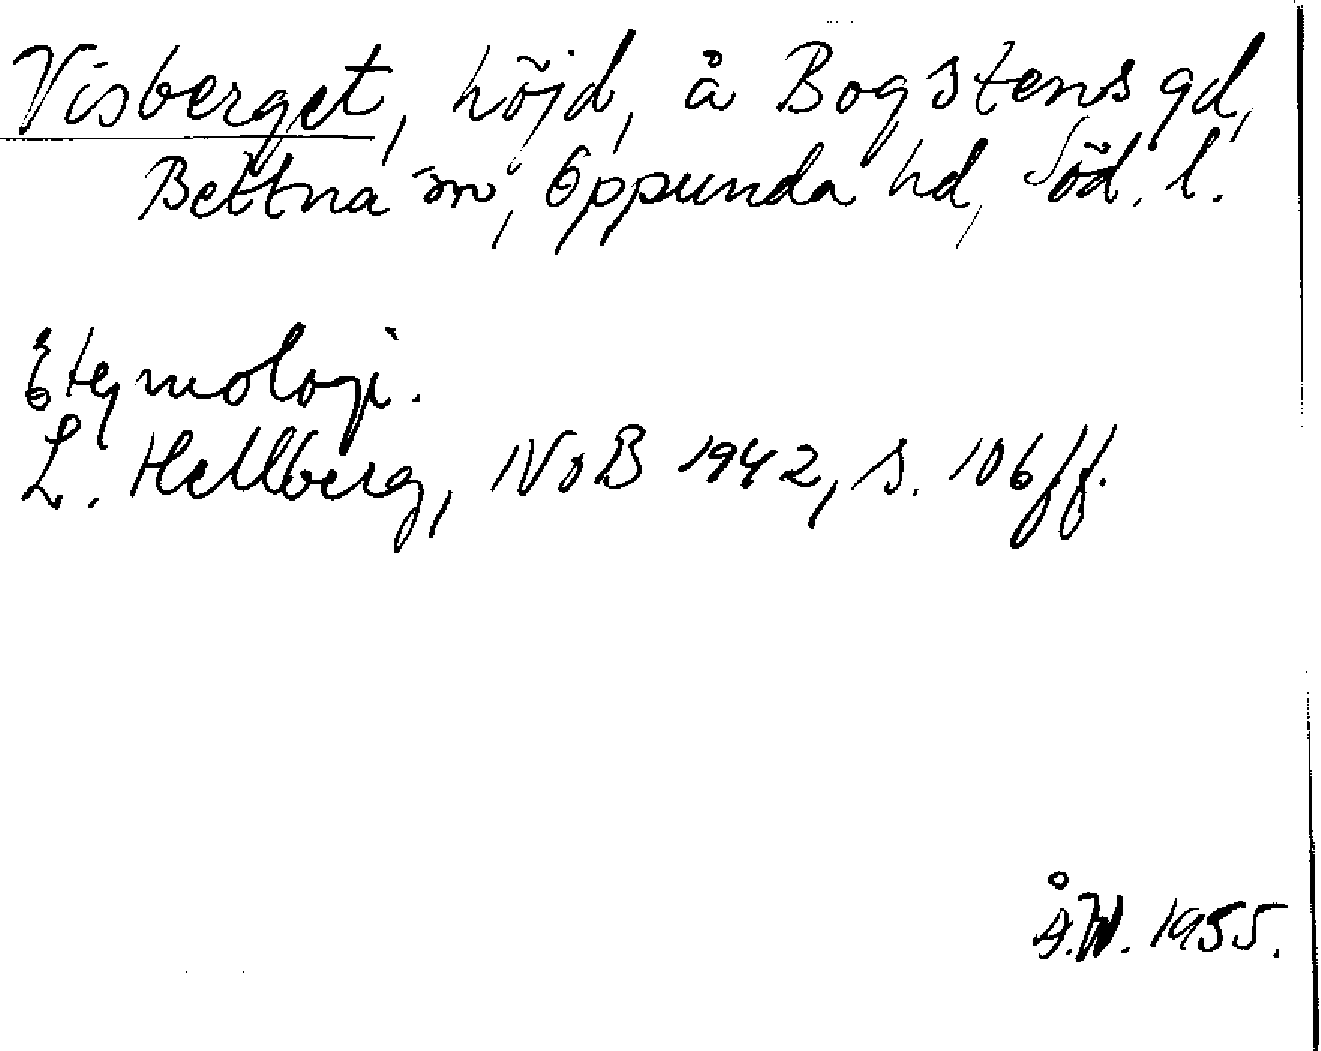 Visberget, höjd, å Bogstens gd,
Bettna sn, Oppunda hd, Söd. l.
Etymologi.
L. Hellberg, NoB 1942, s. 106 ff.
Å.W. 1955.